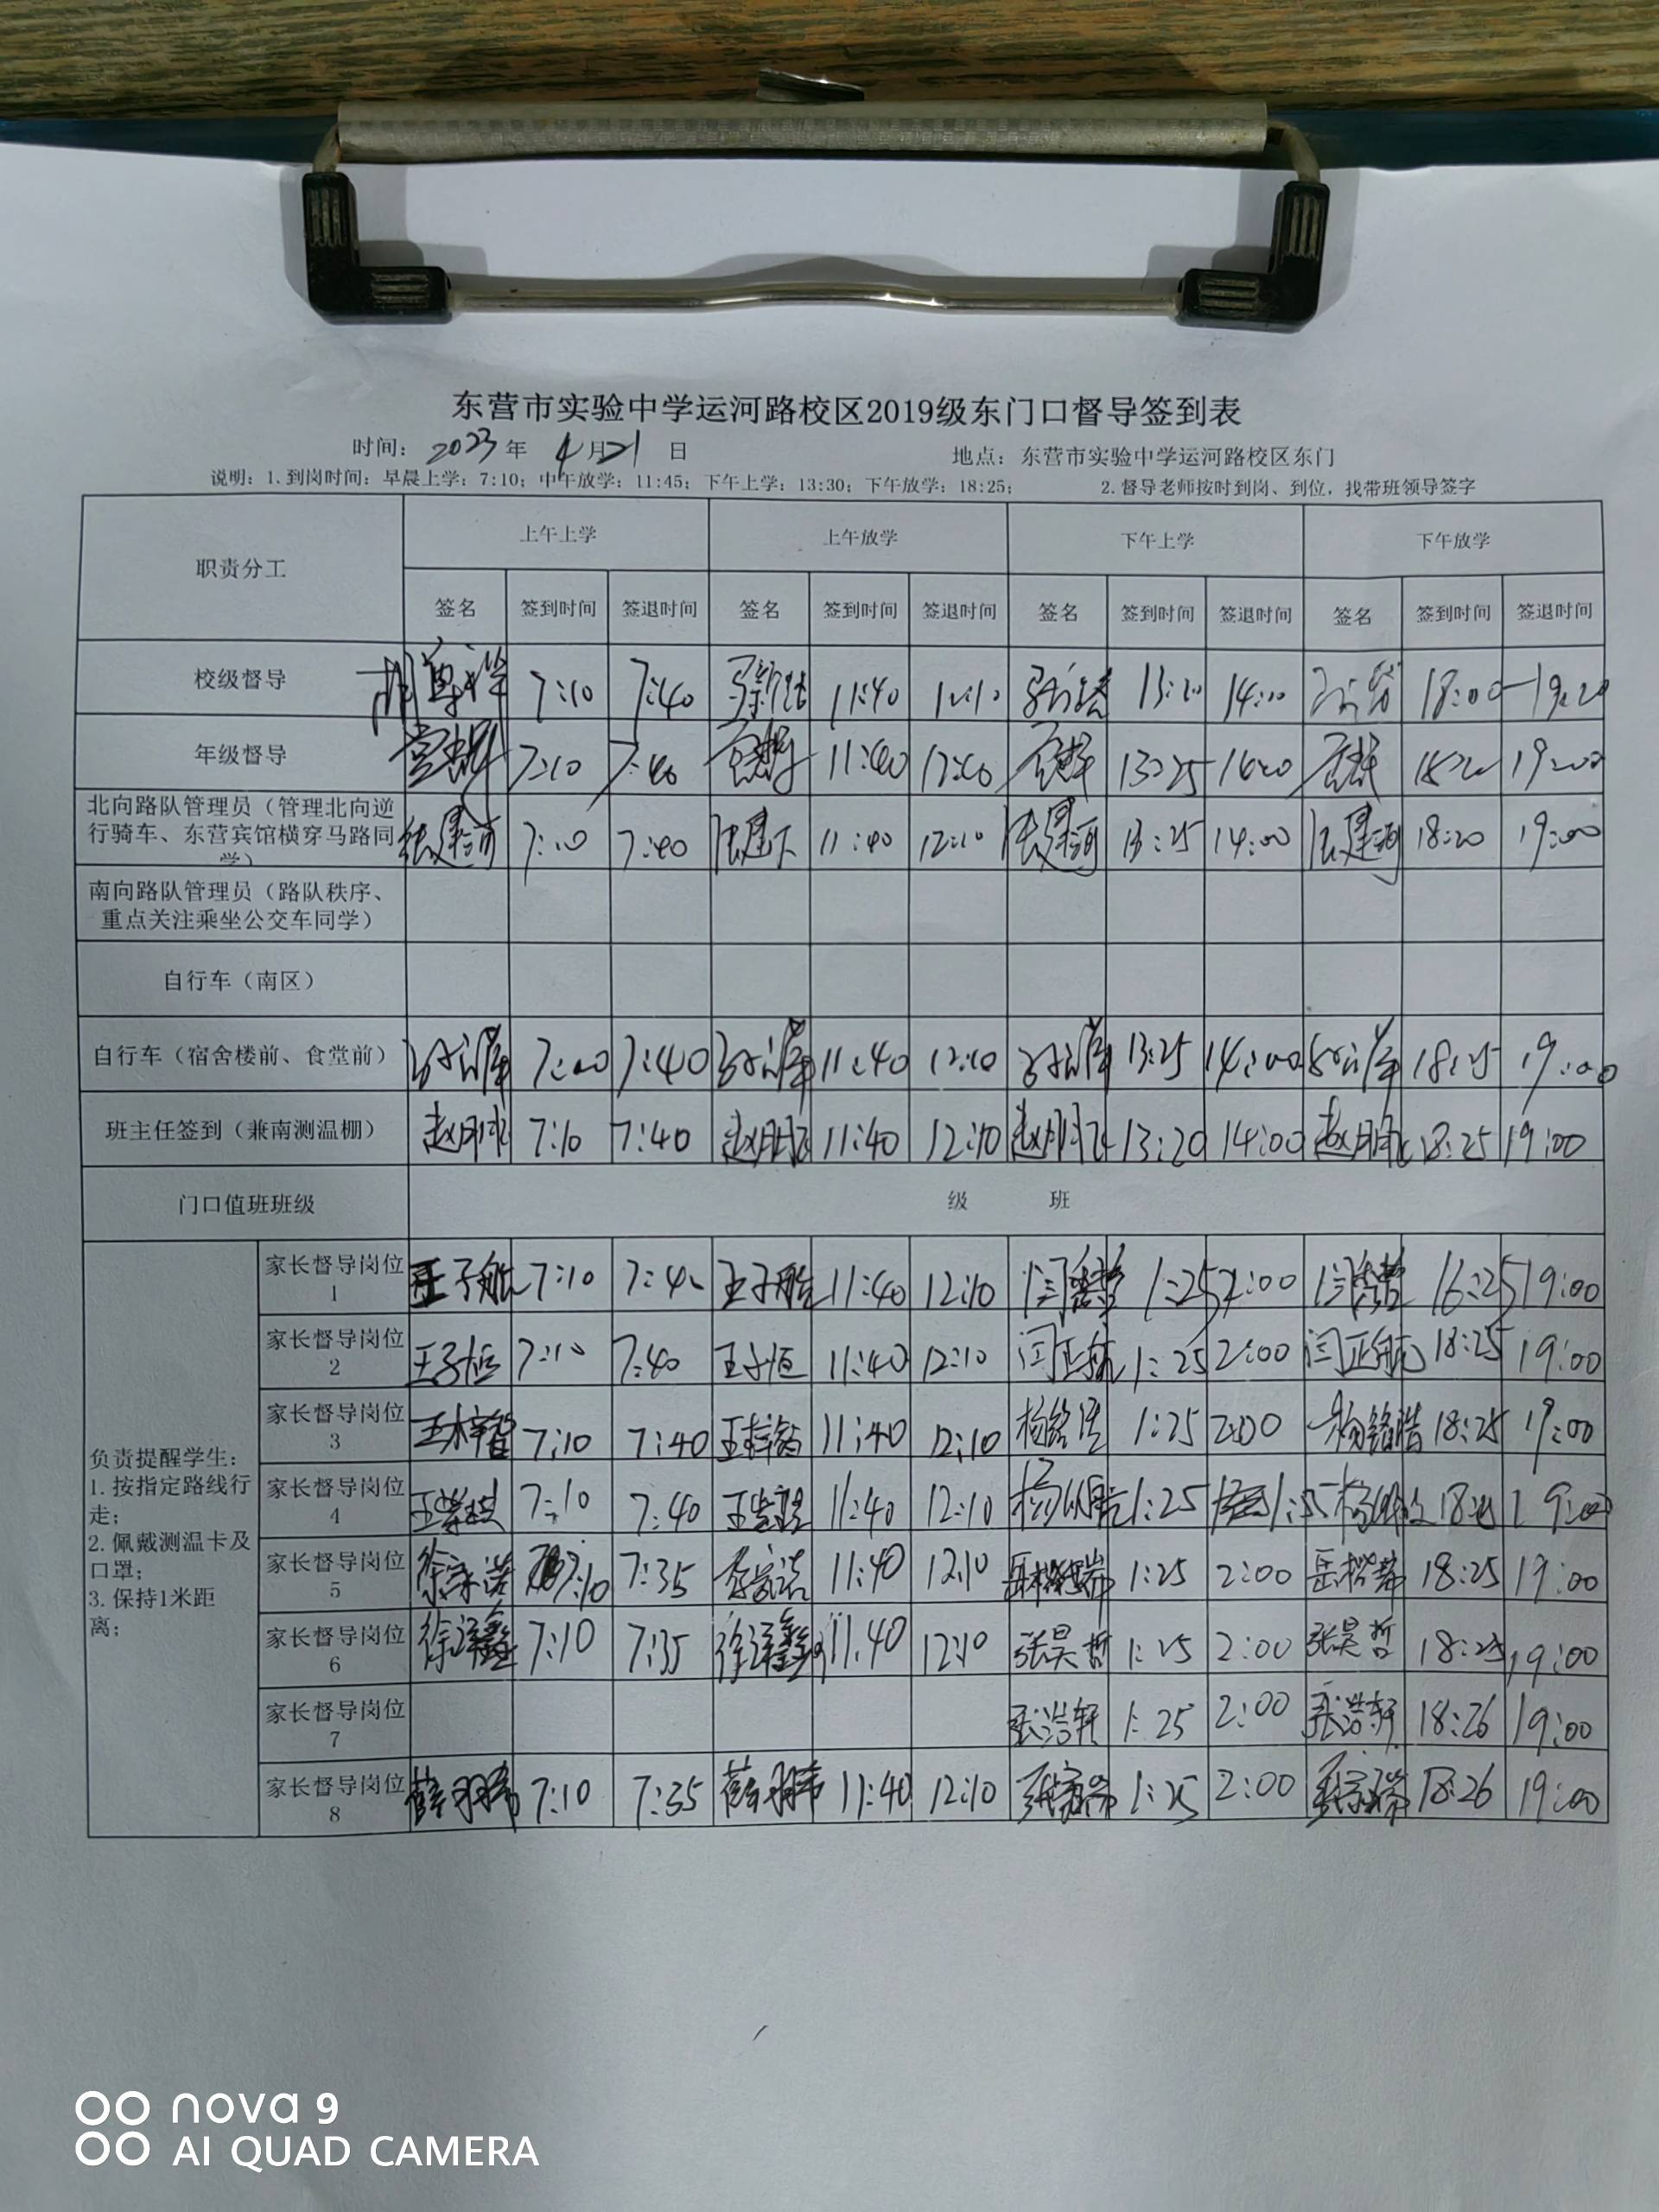 东营市实验中学运河路校区2019级东门口督导签到表
时间： 2023 年 4 月 21 日 地点：东营市实验中学运河路校区东门
说明：1.到岗时间：早晨上学：7:10；中午放学：11:45；下午上学：13:30；下午放学：18:25； 2.督导老师按时到岗、到位，找带班领导签字
职责分工 上午上学 上午放学 下午上学 下午放学
签名 签到时间 签退时间 签名 签到时间 签退时间 签名 签到时间 签退时间 签名 签到时间 签退时间
校级督导 7:10 7:40 11:40 12:10 13:20 14:00 18:00 19:20
年级督导 7:10 7:40 11:40 13:25 18:20 19:00
北向路队管理员（管理北向逆
行骑车、东营宾馆横穿马路同
学） 张建河 7:10 7:40 11:40 12:10 张建河 13:25 14:00 张建河 18:20 19:00
南向路队管理员（路队秩序、
重点关注乘坐公交车同学）
自行车（南区）
自行车（宿舍楼前、食堂前） 7:00 7:40 11:40 12:10 13:25 14:00 18:25 19:00
班主任签到（兼南测温棚） 7:10 7:40 11:40 12:10 13:20 14:00 18:25 19:00
门口值班班级 级 班
负责提醒学生：
1. 按指定路线行
走；
2. 佩戴测温卡及
口罩；
3. 保持1米距
离；
家长督导岗位
1 王子航 7:10 7:40 王子航 11:40 12:10 1:25 2:00 19:00
家长督导岗位
2 王子恒 7:10 7:40 王子恒 11:40 12:10 闫正航 1:25 2:00 闫正航 18:25 19:00
家长督导岗位
3 王梓智 7:10 7:40 11:40 12:10 杨铭浩 1:25 2:00 杨铭浩 18:25 19:00
家长督导岗位
4 7:10 7:40 11:40 12:10 1:25 19:00
家长督导岗位
5 7:10 7:35 11:40 12:10 1:25 2:00 18:25 19:00
家长督导岗位
6 徐泽鑫 7:10 7:35 徐泽鑫 11:40 12:10 张昊哲 1:25 2:00 张昊哲 18:25 19:00
家长督导岗位
7 张浩轩 1:25 2:00 张浩轩 18:26 19:00
家长督导岗位
8 7:10 7:35 11:40 12:10 1:25 2:00 18:26 19:00
nova 9
AI QUAD CAMERA